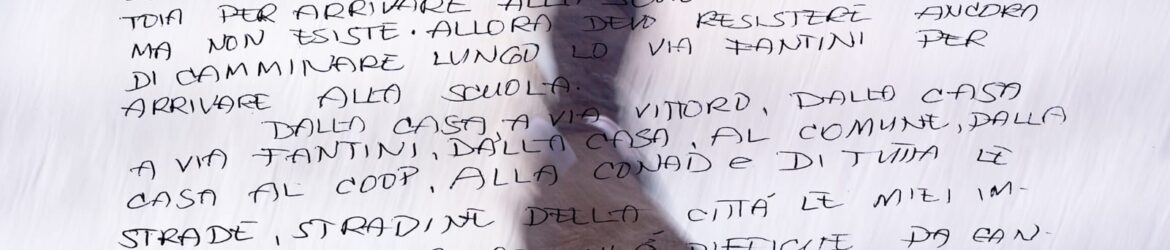 TOIA PER ARRIVARE ALLA
MA NON ESISTE. ALLORA DEVO RESISTERE ANCORA
DI CAMMINARE LUNGO LO VIA FANTINI PER
ARRIVARE ALLA SCUOLA.
DALLA CASA A VIA VITTORO, DALLA CASA
A VIA FANTINI, DALLA CASA, AL COMUNE, DALLA
CASA AL COOP, ALLA CONAD e DI TUTTA LE
STRADE, STRADINE DELLA CITTÁ LE MIEI IM-
DIFFICILE DA CAN-